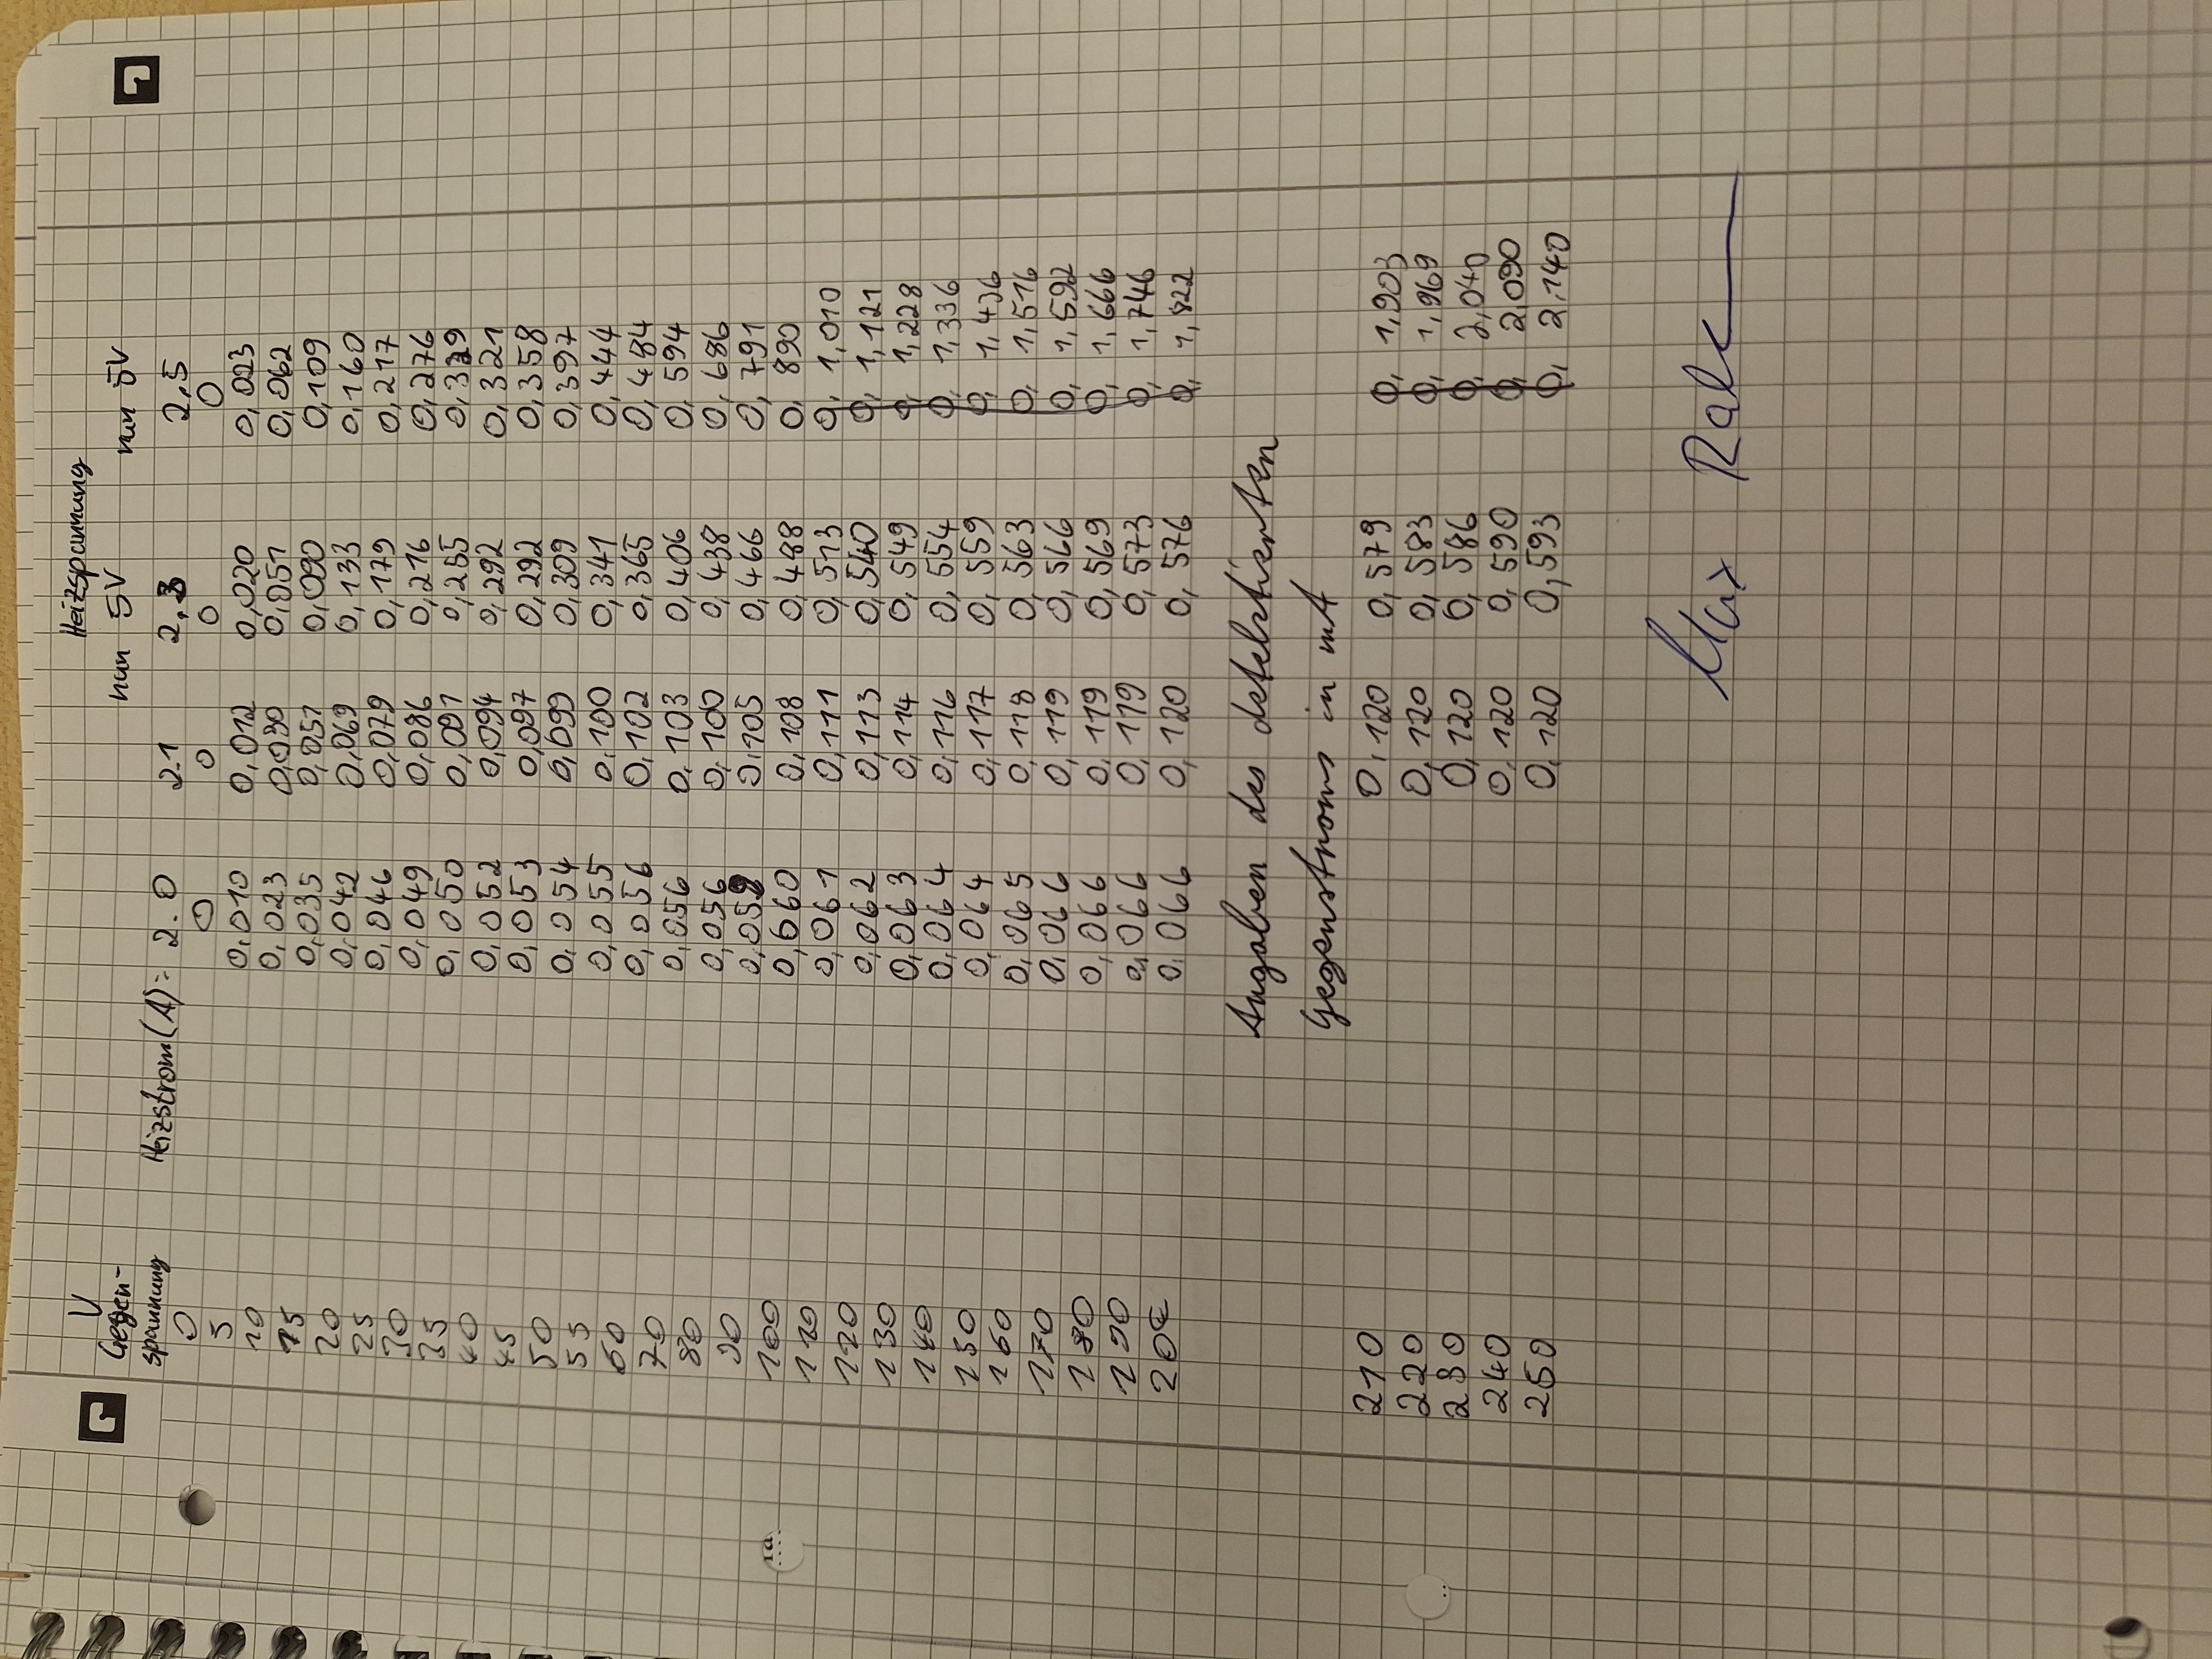 Heizspannung
U nun 5V nun 5V
Gegen-
spannung Heizstrom(A)= 2.0 2.1 2,3 2,5
0 0 0 0 0
5 0,010 0,012 0,020 0,023
10 0,023 0,030 0,051 0,062
15 0,035 0,051 0,090 0,109
20 0,042 0,069 0,133 0,160
25 0,046 0,079 0,179 0,217
30 0,049 0,086 0,216 0,276
35 0,050 0,091 0,255 0,329
40 0,052 0,094 0,292 0,321
45 0,053 0,097 0,292 0,358
50 0,054 0,099 0,309 0,397
55 0,055 0,100 0,341 0,444
60 0,056 0,102 0,365 0,484
70 0,056 0,103 0,406 0,594
80 0,056 0,100 0,438 0,686
90 0,059 0,105 0,466 0,791
100 0,060 0,108 0,488 0,890
110 0,061 0,111 0,513 0, 1,010
120 0,062 0,113 0,540 0, 1,121
130 0,063 0,114 0,549 0, 1,228
140 0,064 0,116 0,554 0, 1,336
150 0,064 0,117 0,559 0, 1,436
160 0,065 0,118 0,563 0, 1,516
170 0,066 0,119 0,566 0, 1,592
180 0,066 0,119 0,569 0, 1,666
190 0,066 0,119 0,573 0, 1,746
200 0,066 0,120 0,576 0, 1,822
Angaben des detektierten
Gegenstroms in mA
210 0,120 0,579 0, 1,903
220 0,120 0,583 0, 1,969
230 0,120 0,586 0, 2,040
240 0,120 0,590 0, 2,090
250 0,120 0,593 0, 2,140
Max